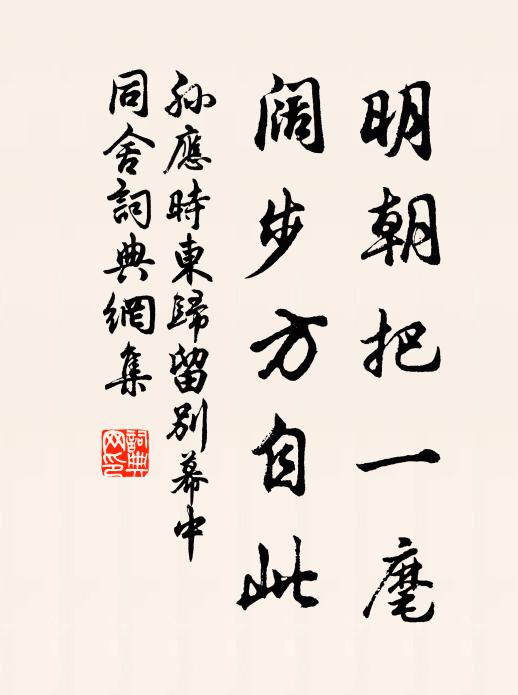 明朝把一麾
阔步方自此
孙應時東歸留別幕中
同舍詞典網集
詞典網印